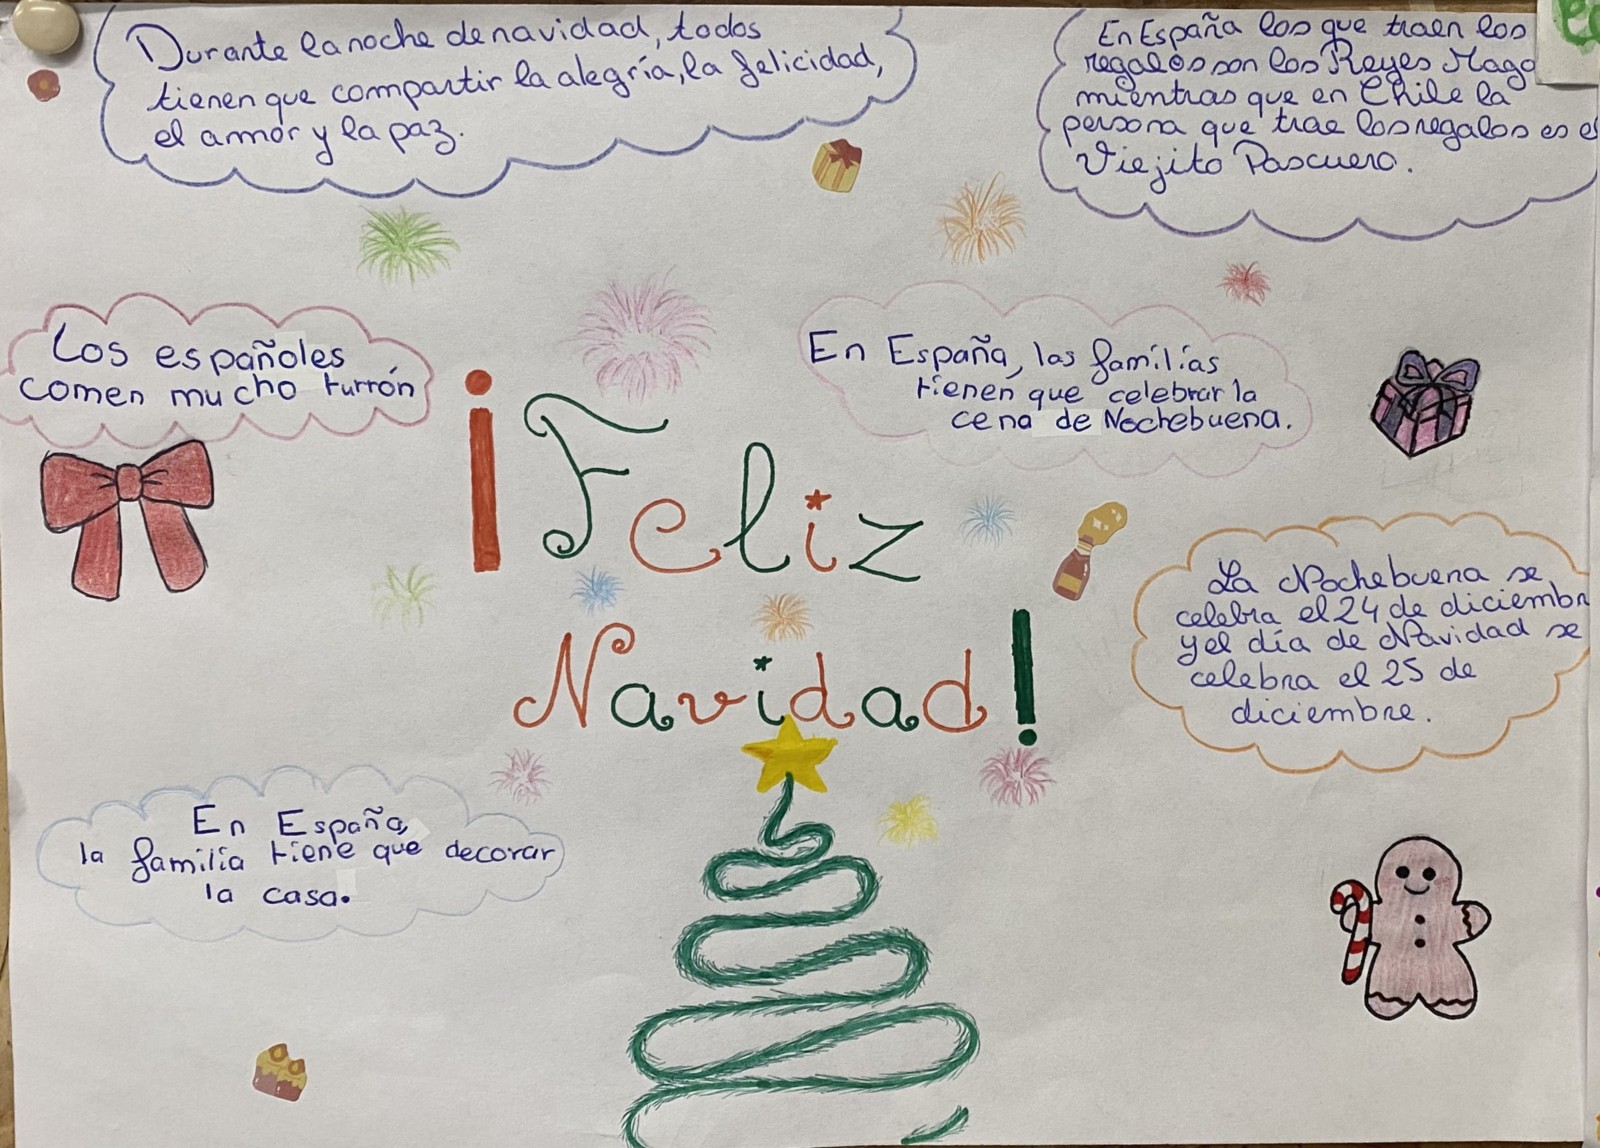 Durante la noche de navidad, todos
tienen que compartir la alegría, la felicidad,
el amor y la paz.
En España los que traen los
regalos son los Reyes Mago
mientras que en Chile la
persona que trae los regalos es e
Viejito Pascuero.
Los españoles
comen mucho turrón
En España, las familias
tienen que celebrar la
cena de Nochebuena.
¡Feliz
Navidad!
La Nochebuena se
celebra el 24 de diciembr
y el día de Navidad se
celebra el 25 de
diciembre.
En España,
la familia tiene que decorar
la casa.